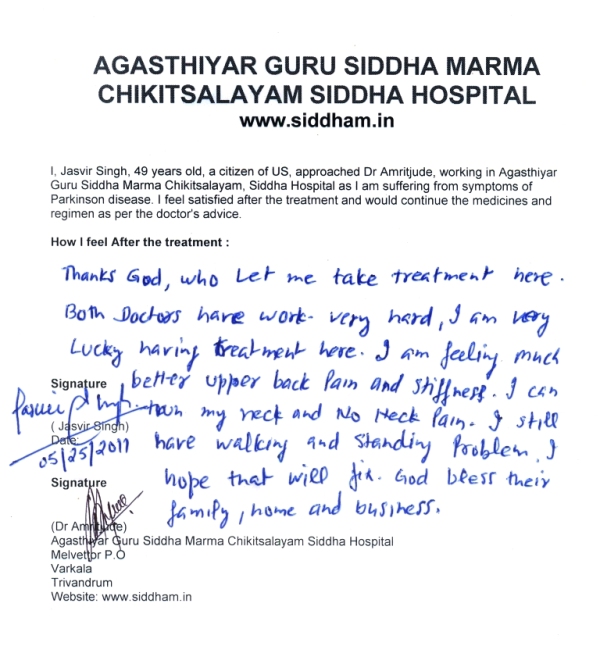 AGASTHIYAR GURU SIDDHA MARMA
CHIKITSALAYAM SIDDHA HOSPITAL
www.siddham.in
I, Jasvir Singh, 49 years old, a citizen of US, approached Dr Amritjude, working in Agasthiyar
Guru Siddha Marma Chikitsalayam, Siddha Hospital as I am suffering from symptoms of
Parkinson disease. I feel satisfied after the treatment and would continue the medicines and
regimen as per the doctor's advice.
How I feel After the treatment :
Thanks God, who Let me take treatment here.
Both Doctors have work very hard, I am very
Lucky having treatment here. I am feeling much
better upper back Pain and stiffness. I can
turn my neck and No Neck Pain. I still
have walking and standing Problem. I
hope that will fix. God bless their
family, home and business.
Signature
( Jasvir Singh)
Date:
05/25/2011
Signature
(Dr Amritjude)
Agasthiyar Guru Siddha Marma Chikitsalayam Siddha Hospital
Melvettor P.O
Varkala
Trivandrum
Website: www.siddham.in